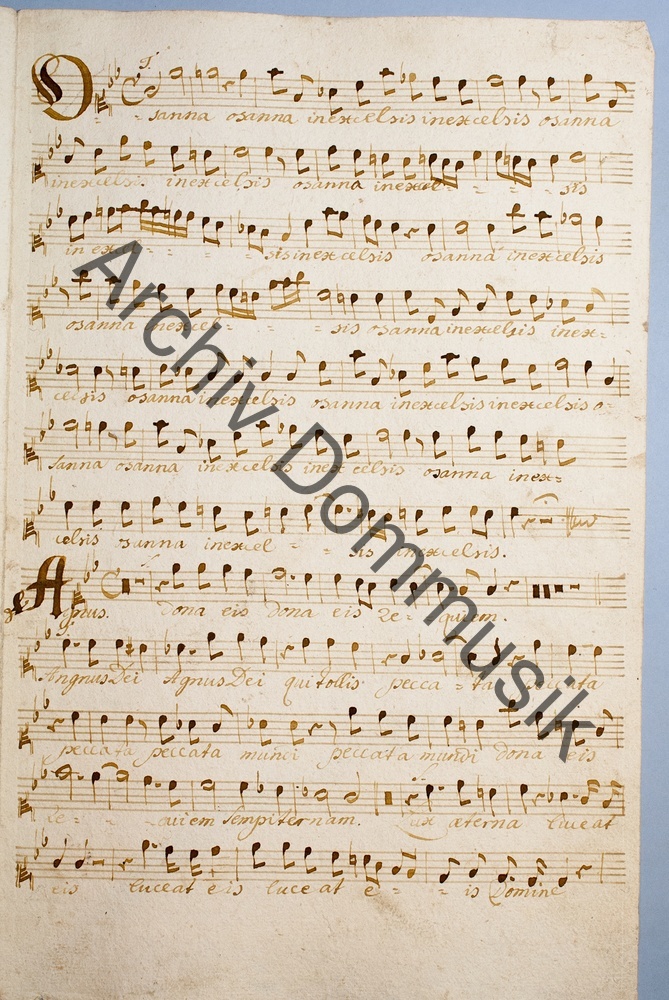 Osanna osanna inexcelsis inexcelsis osanna
inexcelsi. inexcelsis osanna inexcel - - - sis
in excel - - - sis inexcelsis osanna inexcelsis
osanna inexcel - - - sis osanna inexcelsis inex-
celsis osanna inexcelsis osanna inexcelsis inexcelsis o-
sanna osanna inexcelsis inexcelsis osanna inex-
celsis osanna inexcel - - sis inexcelsis.
Agnus. dona eis dona eis Re - quiem.
AngnusDei AgnusDei qui tollis pecca - ta peccata
peccata peccata mundi peccata mundi dona eis
Re - - quiem sempiternam. Lux æterna luceat
eis luceat eis luceat e - - is Domine
Archiv Dommusik